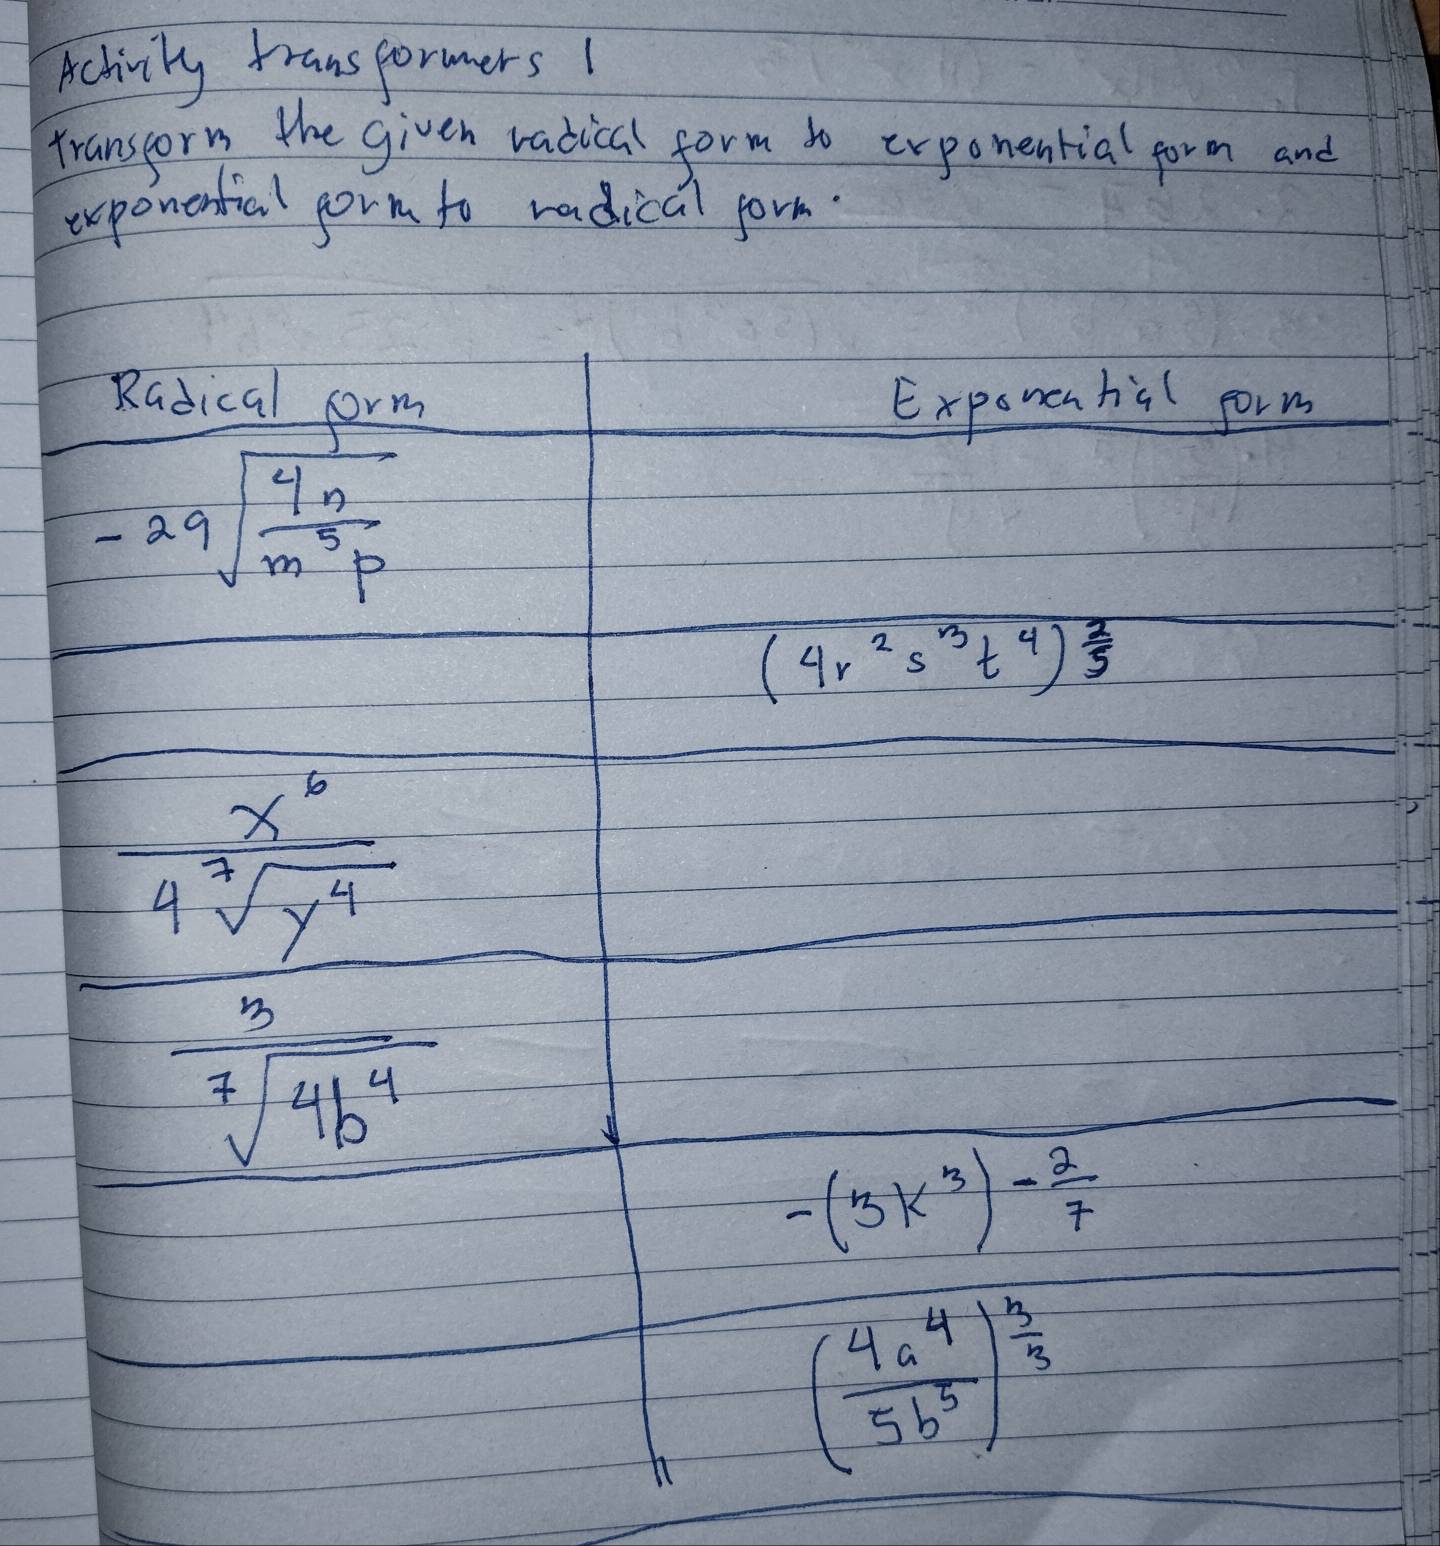 Activity transformers 1
transform the given radical form to exponential form and
exponential form to radical form.
Radical form Exponential form
-29√(4n/m⁵p)
(4r²s³t⁴)^(2/5)
x⁶/(4 ⁷√(y⁴))
3/(⁷√(4b⁴))
-(3k³)^(-2/7)
(4a⁴/5b⁵)^(3/3)